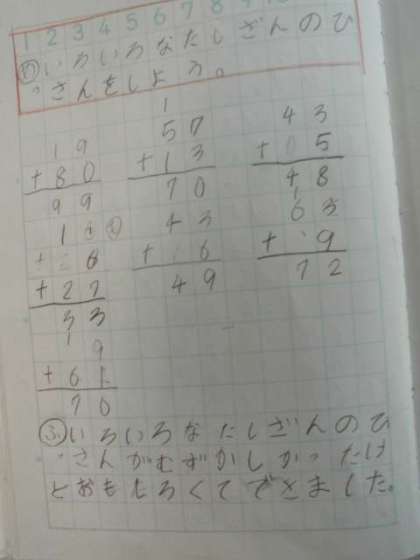 1 2 3 4 5 6 7 8 9 10
いろいろなたしざんのひ
っさんをしよう。
1
19 57 43
+80 +13 +5
99 70 48
43 63
+6 +6 +9
+27 49 72
33
1
9
+61
70
ふ いろいろなたしざんのひ
っさんがむずかしかったけ
どおもしろくてできました。